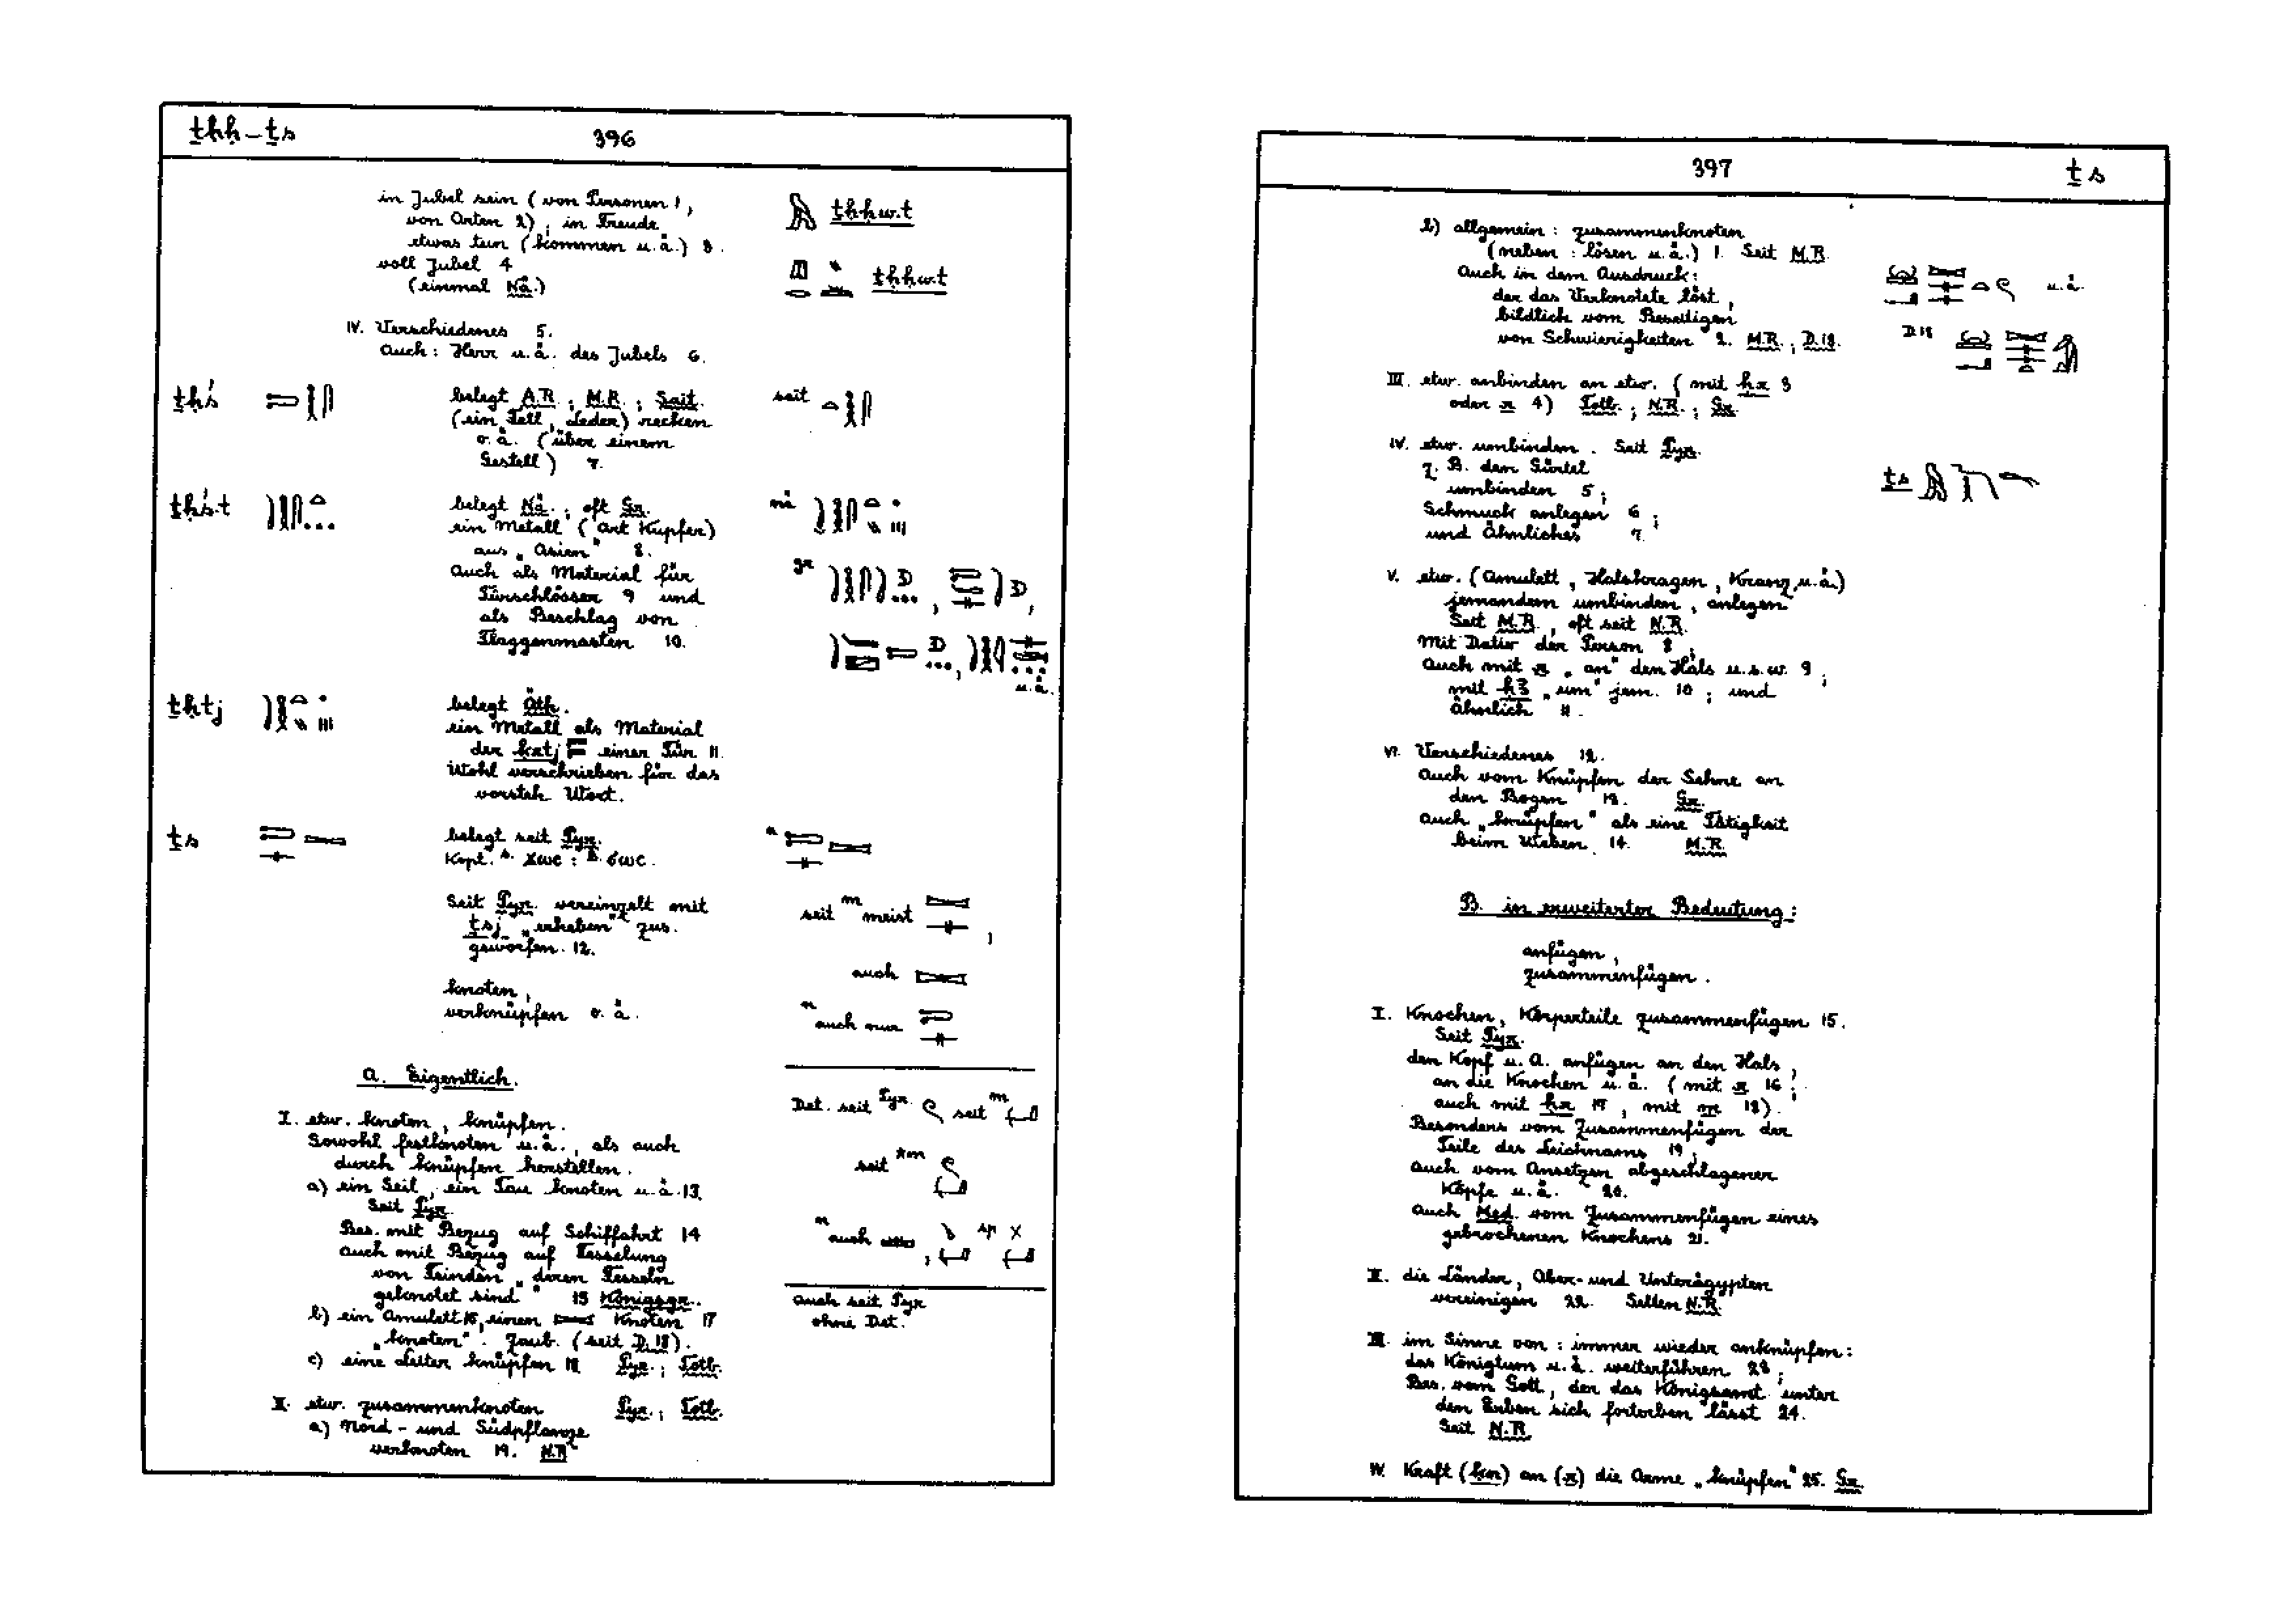 ṯḥḥ – ṯs
396
in Jubel sein (von Personen 1,
von Orten 2), in Freude
etwas tun (kommen u.ä.) 3.
voll Jubel 4
(einmal Nä.)
ṯḥḥw.t
ṯḥḥw.t
IV. Verschiedenes 5.
Auch: Herr u.ä. des Jubels 6.
ṯḥś
belegt A.R.; M.R.; Sait.
(ein Fell, Leder) recken
o.ä. (über einem
Gestell) 7.
seit
ṯḥś.t
belegt Nä.; oft Gr.
ein Metall (Art Kupfer)
aus „Asien" 8.
Auch als Material für
Türschlösser 9 und
als Beschlag von
Flaggenmasten 10.
nä
gr
u.ä.
ṯḥtj
belegt Äth.
ein Metall als Material
der ẖrtj einer Tür 11.
Wohl verschrieben für das
vorsteh. Wort.
ṯs
belegt seit Pyr.
Kopt. S. ϫⲱⲥ : B. ϭⲱⲥ.
Seit Pyr. vereinzelt mit
ṯsj „erheben" zus.
geworfen. 12.
knoten,
verknüpfen o.ä.
n
seit m meist
,
auch
n auch nur
A. Eigentlich.
I. etw. knoten, knüpfen.
Sowohl festknoten u.ä., als auch
durch knüpfen herstellen.
a) ein Seil, ein Tau knoten u.ä. 13.
Seit Pyr.
Bes. mit Bezug auf Schiffahrt 14
auch mit Bezug auf Fesselung
von Feinden „deren Fesseln
geknotet sind" 15 Königsgr.
b) ein Amulett 16, einen Knoten 17
„knoten". Zaub. (seit D.18).
c) eine Leiter knüpfen 18 Pyr.; Totb.
II. etw. zusammenknoten Pyr.; Totb.
a) Nord- und Südpflanze
verknoten 19. N.R.
Det. seit Pyr. seit m
seit
n auch , sp
Auch seit Pyr
ohne Det.
397
ṯs
b) allgemein: zusammenknoten
(neben: lösen u.ä.) 1. Seit M.R.
Auch in dem Ausdruck:
der das Verknotete löst,
bildlich vom Beseitigen
von Schwierigkeiten 2. M.R.; D.18.
u.ä.
D.18
III. etw. anbinden an etw. (mit ḥr 3
oder r 4) Totb.; N.R.; Gr.
IV. etw. umbinden. Seit Pyr.
z. B. den Gürtel
umbinden 5;
Schmuck anlegen 6;
und Ähnliches 7.
ṯs
V. etw. (Amulett, Halskragen, Kranz u.ä.)
jemandem umbinden, anlegen
Seit M.R., oft seit N.R.
Mit Dativ der Person 8;
Auch mit r „an" den Hals u.s.w. 9;
mit ḥ3 „um" jem. 10; und
ähnlich 11.
VI. Verschiedenes 12.
Auch vom Knüpfen der Sehne an
den Bogen 13. Gr.
Auch „knüpfen" als eine Tätigkeit
beim Weben 14. M.R.
B. in erweiterter Bedeutung:
anfügen,
zusammenfügen.
I. Knochen, Körperteile zusammenfügen 15.
Seit Pyr.
den Kopf u.ä. anfügen an den Hals,
an die Knochen u.ä. (mit r 16;
auch mit ḥr 17, mit m 18).
Besonders vom Zusammenfügen der
Teile des Leichnams 19;
Auch vom Ansetzen abgeschlagener
Köpfe u.ä. 20.
Auch Med. vom Zusammenfügen eines
gebrochenen Knochens 21.
II. die Länder, Ober- und Unterägypten
vereinigen 22. Selten N.R.
III. im Sinne von: immer wieder anknüpfen:
das Königtum u.ä. weiterführen 23;
Bes. vom Gott, der das Königsamt unter
den Erben sich forterben lässt 24.
Seit N.R.
IV. Kraft (ḳn) an (r) die Arme „knüpfen" 25. Gr.